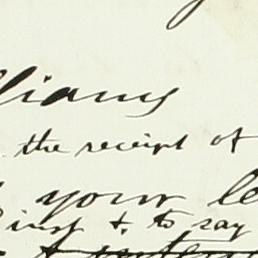 lliams
the receipt of
your le
inst & to say